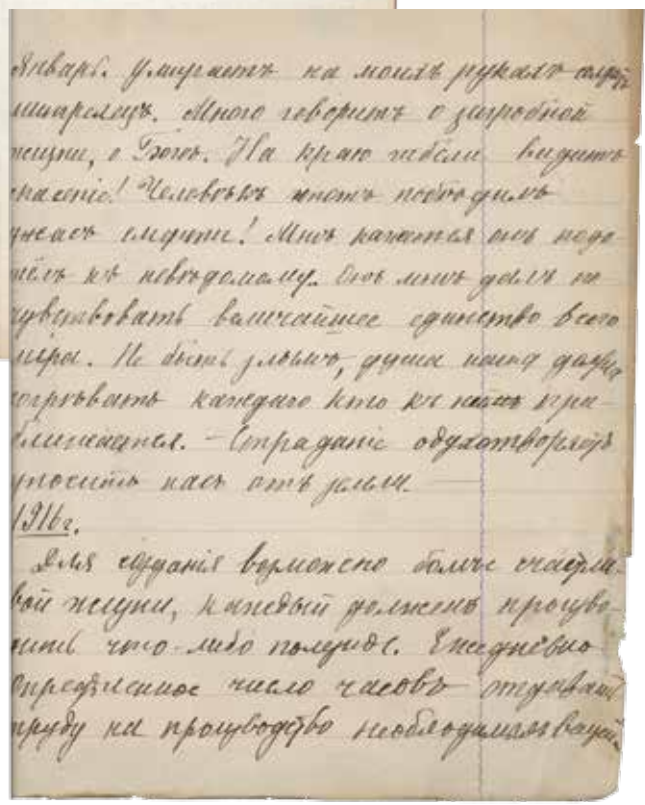 Январь. Умираетъ на моихъ рукахъ солдатъ
митрелецъ. Много говоритъ о загробной
жизни, о Богѣ. На краю гибели видитъ
спасеніе! Человѣкъ этотъ побѣдилъ
ужасъ смерти! Мнѣ кажется онъ подо-
шёлъ къ невѣдомому. Онъ мнѣ далъ по
чувствовать величайшее единство всего
міра. Не быть злымъ, душа наша должна
согрѣвать каждаго кто къ намъ при-
ближается. — Страданіе одухотворяетъ
уноситъ насъ отъ земли.
1916 г.
Для созданія возможно болѣе счастли-
вой жизни, каждый долженъ произво-
дить что-либо полезное. Ежедневно
опредѣленное число часовъ отдавать
труду на производство необходимыхъ вещей